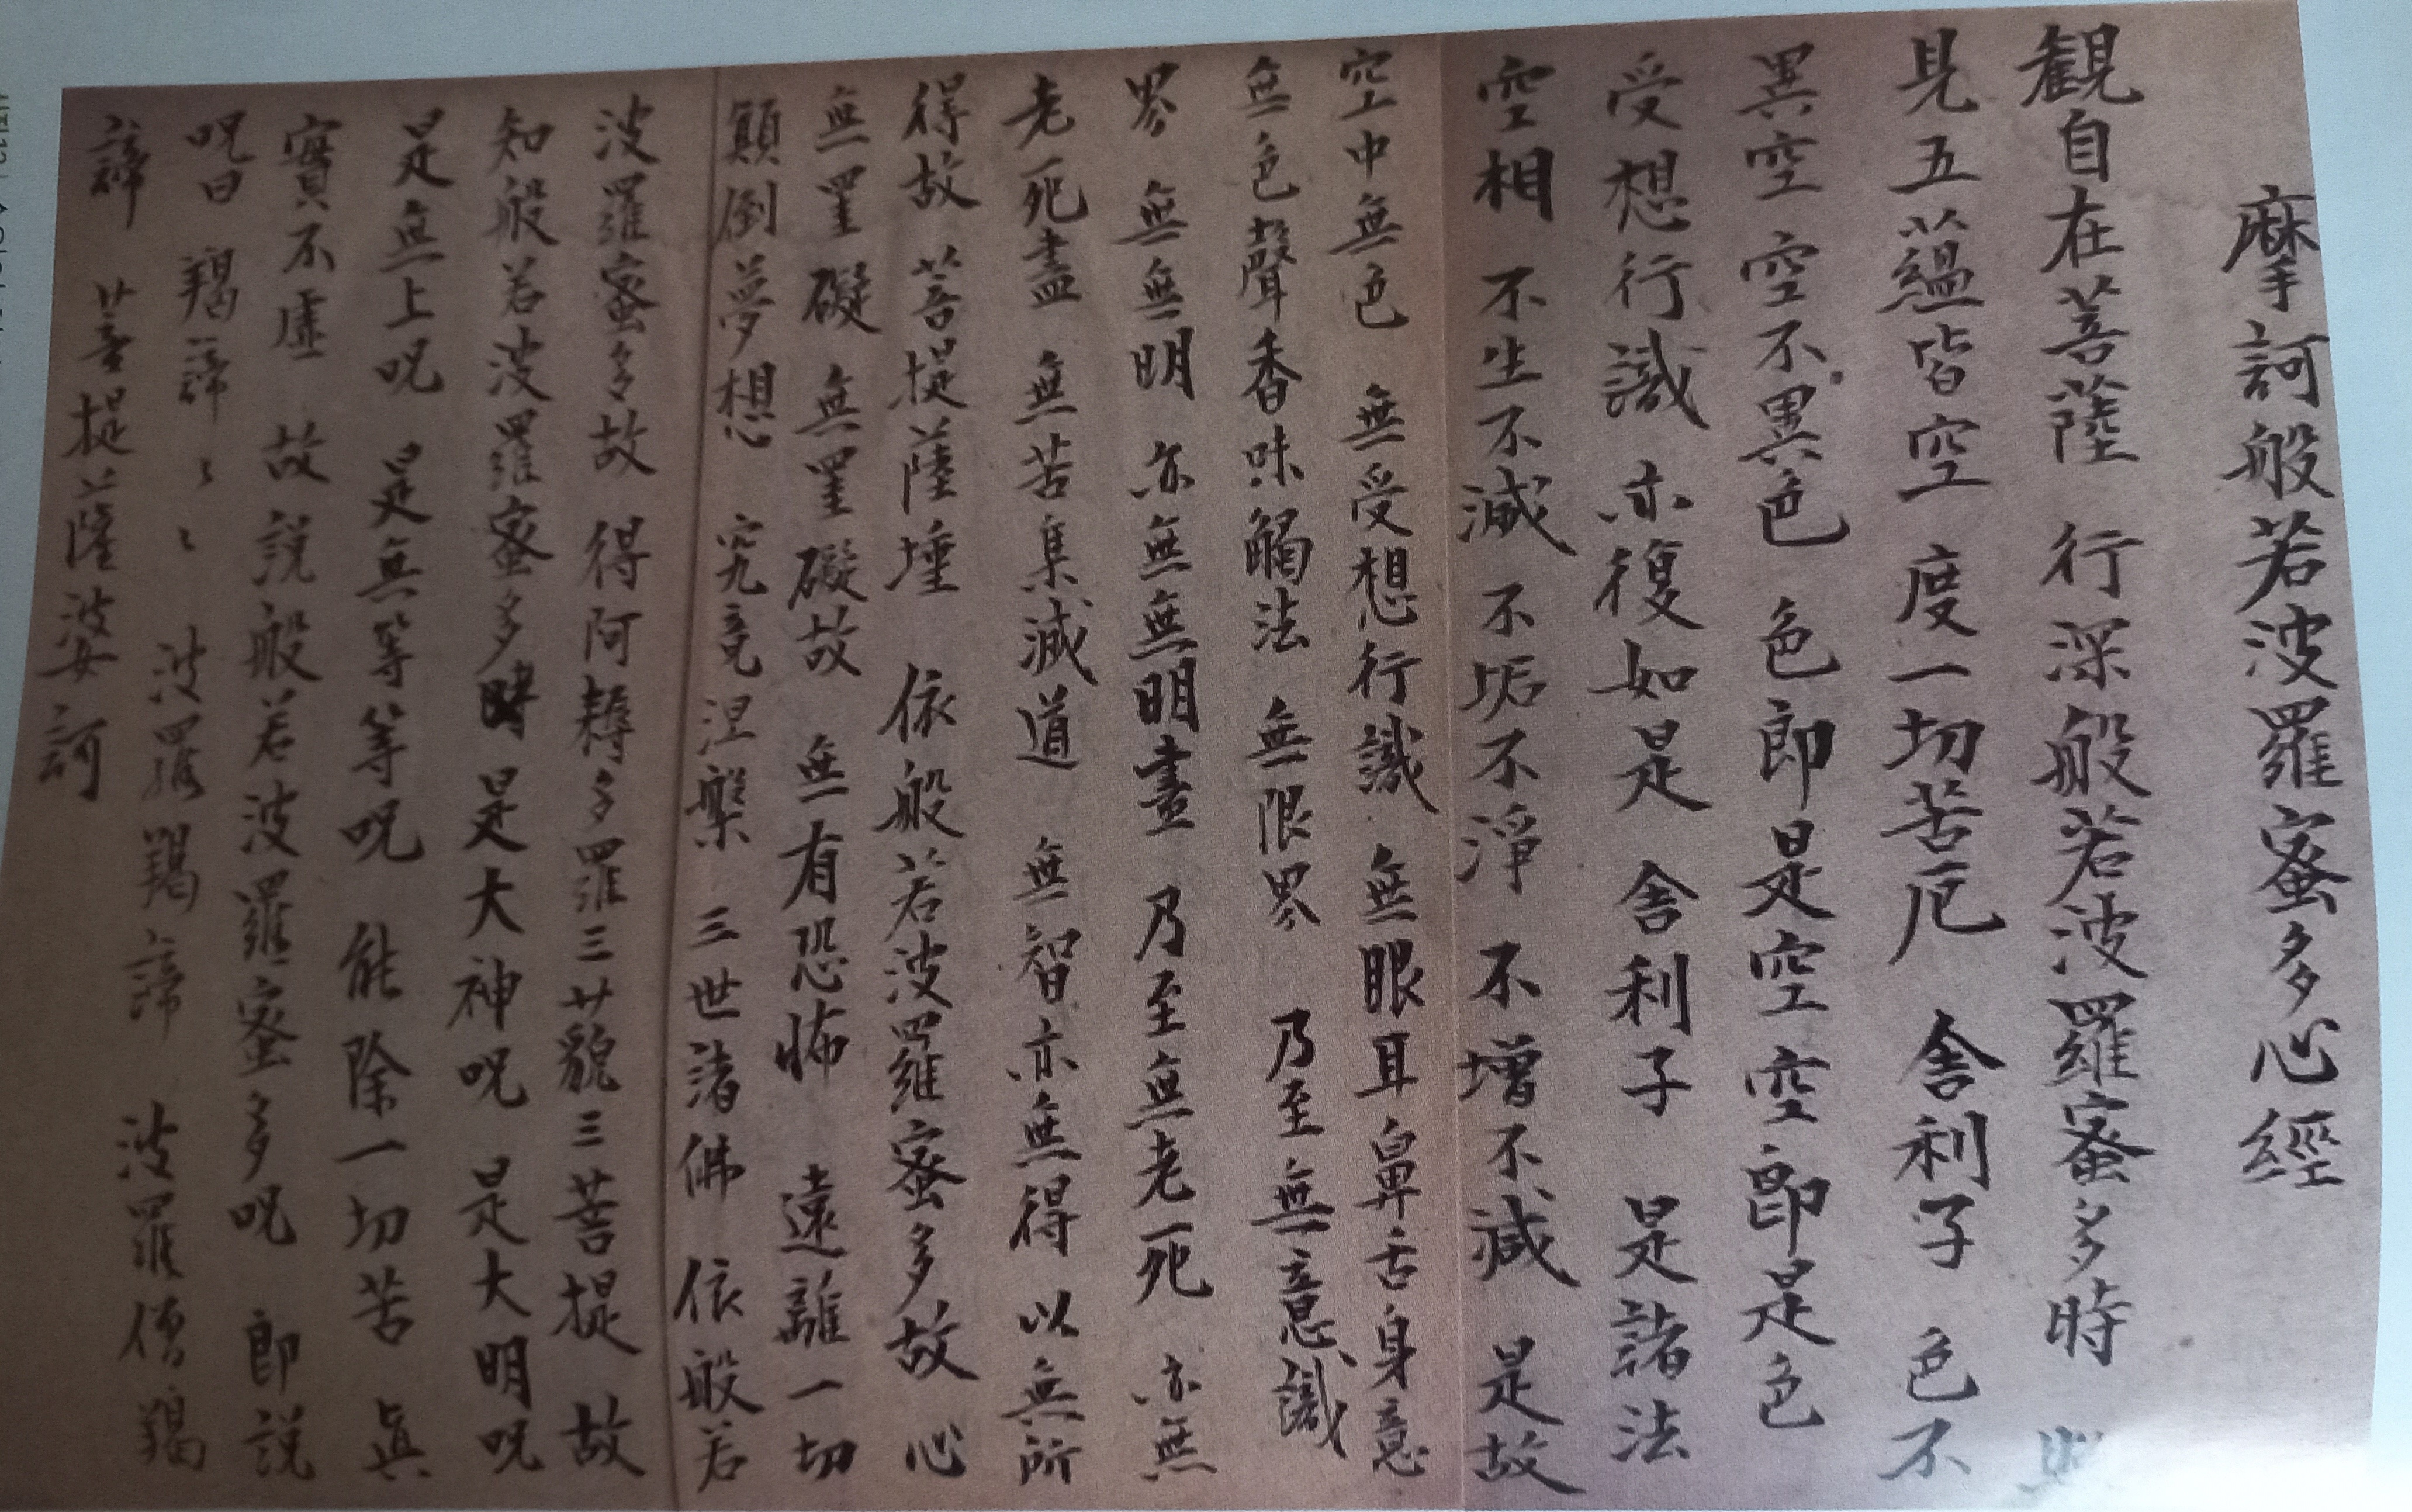 摩訶般若波羅蜜多心經
観自在菩薩 行深般若波羅蜜多時 照
見五蘊皆空 度一切苦厄 舎利子 色不
異空 空不異色 色即是空 空即是色
受想行識 亦復如是 舎利子 是諸法
空相 不生不滅 不垢不淨 不增不減 是故
空中無色 無受想行識 無眼耳鼻舌身意
無色聲香味觸法 無限界 乃至無意識
界 無無明 亦無無明盡 乃至無老死 亦無
老死盡 無苦集滅道 無智亦無得 以無所
得故 菩提薩埵 依般若波羅蜜多故 心
無罣礙 無罣礙故 無有恐怖 遠離一切
顛倒夢想 究竟涅槃 三世諸佛 依般若
波羅蜜多故 得阿耨多羅三藐三菩提 故
知般若波羅蜜多時 是大神呪 是大明呪
是無上呪 是無等等呪 能除一切苦 眞
實不虛 故說般若波羅蜜多呪 即說
呪曰 羯諦〻〻 波羅羯諦 波羅僧羯
諦 菩提薩婆訶